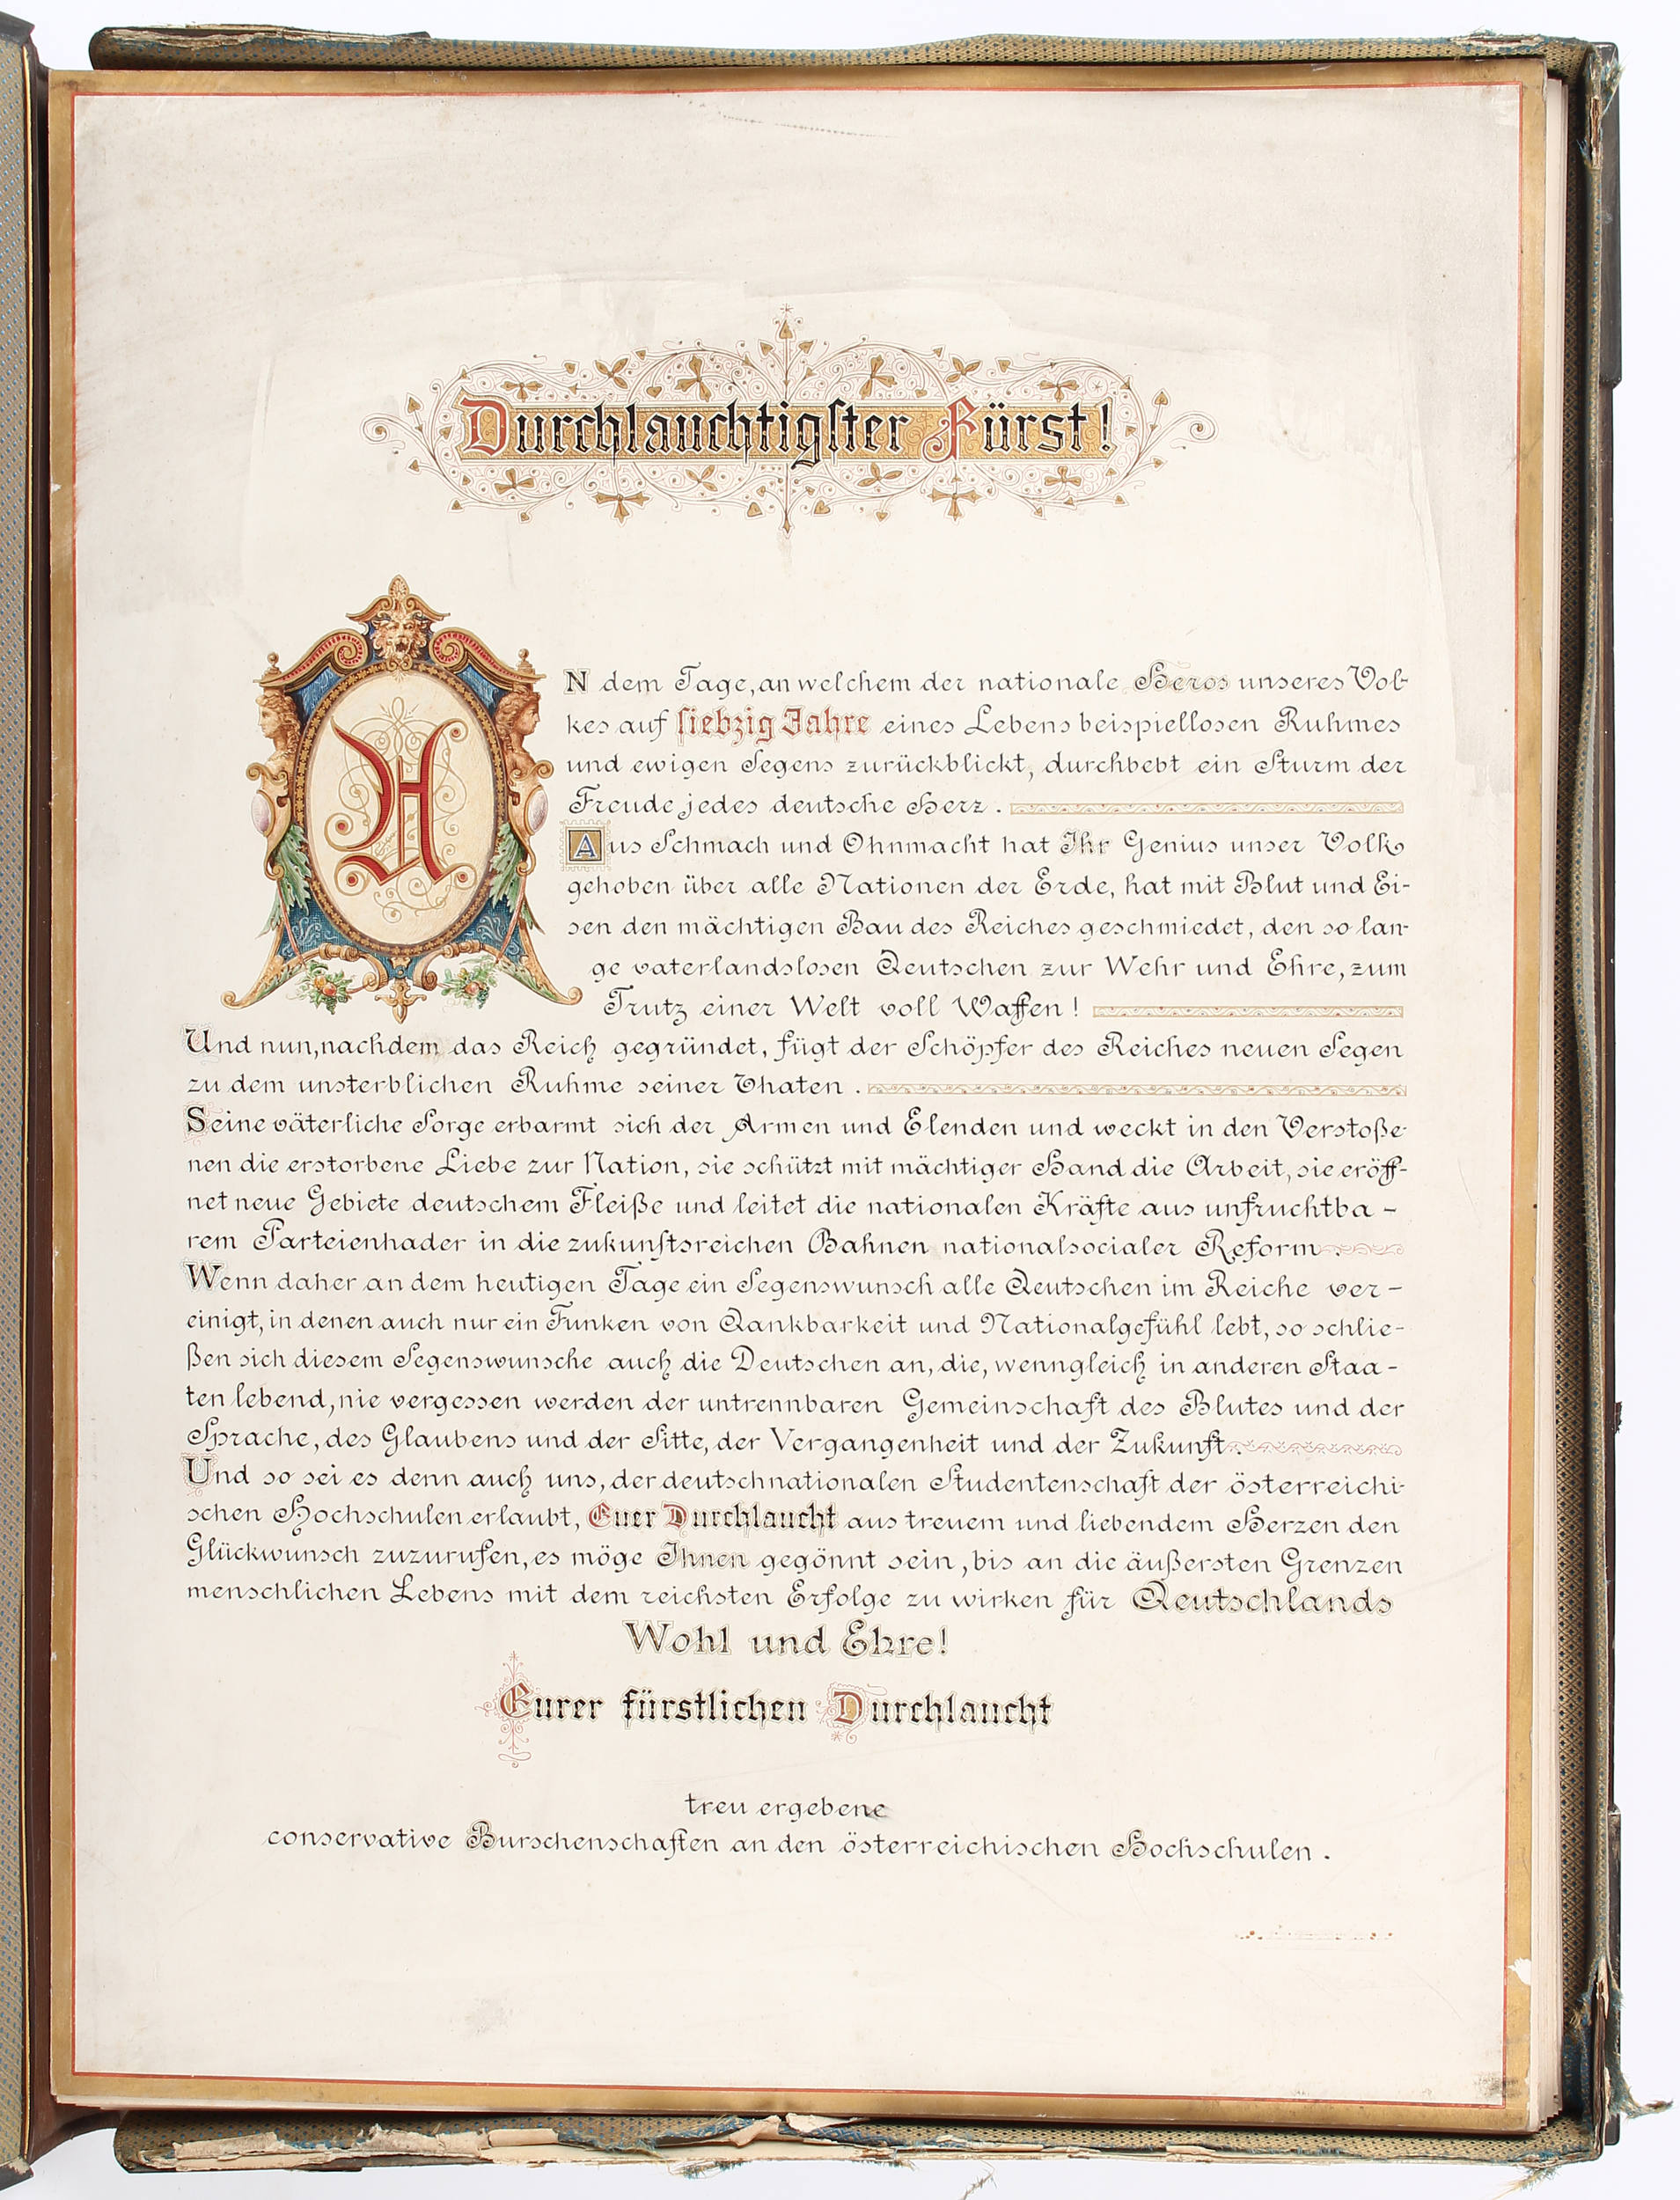 Durchlauchtigster Fürst!
AN dem Tage, an welchem der nationale Heros unseres Vol-
kes auf siebzig Jahre eines Lebens beispiellosen Ruhmes
und ewigen Segens zurückblickt, durchbebt ein Sturm der
Freude jedes deutsche Herz.
Aus Schmach und Ohnmacht hat Ihr Genius unser Volk
gehoben über alle Nationen der Erde, hat mit Blut und Ei-
sen den mächtigen Bau des Reiches geschmiedet, den so lan-
ge vaterlandslosen Deutschen zur Wehr und Ehre, zum
Trutz einer Welt voll Waffen!
Und nun, nachdem das Reich gegründet, fügt der Schöpfer des Reiches neuen Segen
zu dem unsterblichen Ruhme seiner Thaten.
Seine väterliche Sorge erbarmt sich der Armen und Elenden und weckt in den Verstoße-
nen die erstorbene Liebe zur Nation, sie schützt mit mächtiger Hand die Arbeit, sie eröff-
net neue Gebiete deutschem Fleiße und leitet die nationalen Kräfte aus unfruchtba-
rem Parteienhader in die zukunftsreichen Bahnen nationalsocialer Reform.
Wenn daher an dem heutigen Tage ein Segenswunsch alle Deutschen im Reiche ver-
einigt, in denen auch nur ein Funken von Dankbarkeit und Nationalgefühl lebt, so schlie-
ßen sich diesem Segenswunsche auch die Deutschen an, die, wenngleich in anderen Staa-
ten lebend, nie vergessen werden der untrennbaren Gemeinschaft des Blutes und der
Sprache, des Glaubens und der Sitte, der Vergangenheit und der Zukunft.
Und so sei es denn auch uns, der deutschnationalen Studentenschaft der österreichi-
schen Hochschulen erlaubt, Euer Durchlaucht aus treuem und liebendem Herzen den
Glückwunsch zuzurufen, es möge Ihnen gegönnt sein, bis an die äußersten Grenzen
menschlichen Lebens mit dem reichsten Erfolge zu wirken für Deutschlands
Wohl und Ehre!
Eurer fürstlichen Durchlaucht
treu ergebene
conservative Burschenschaften an den österreichischen Hochschulen.